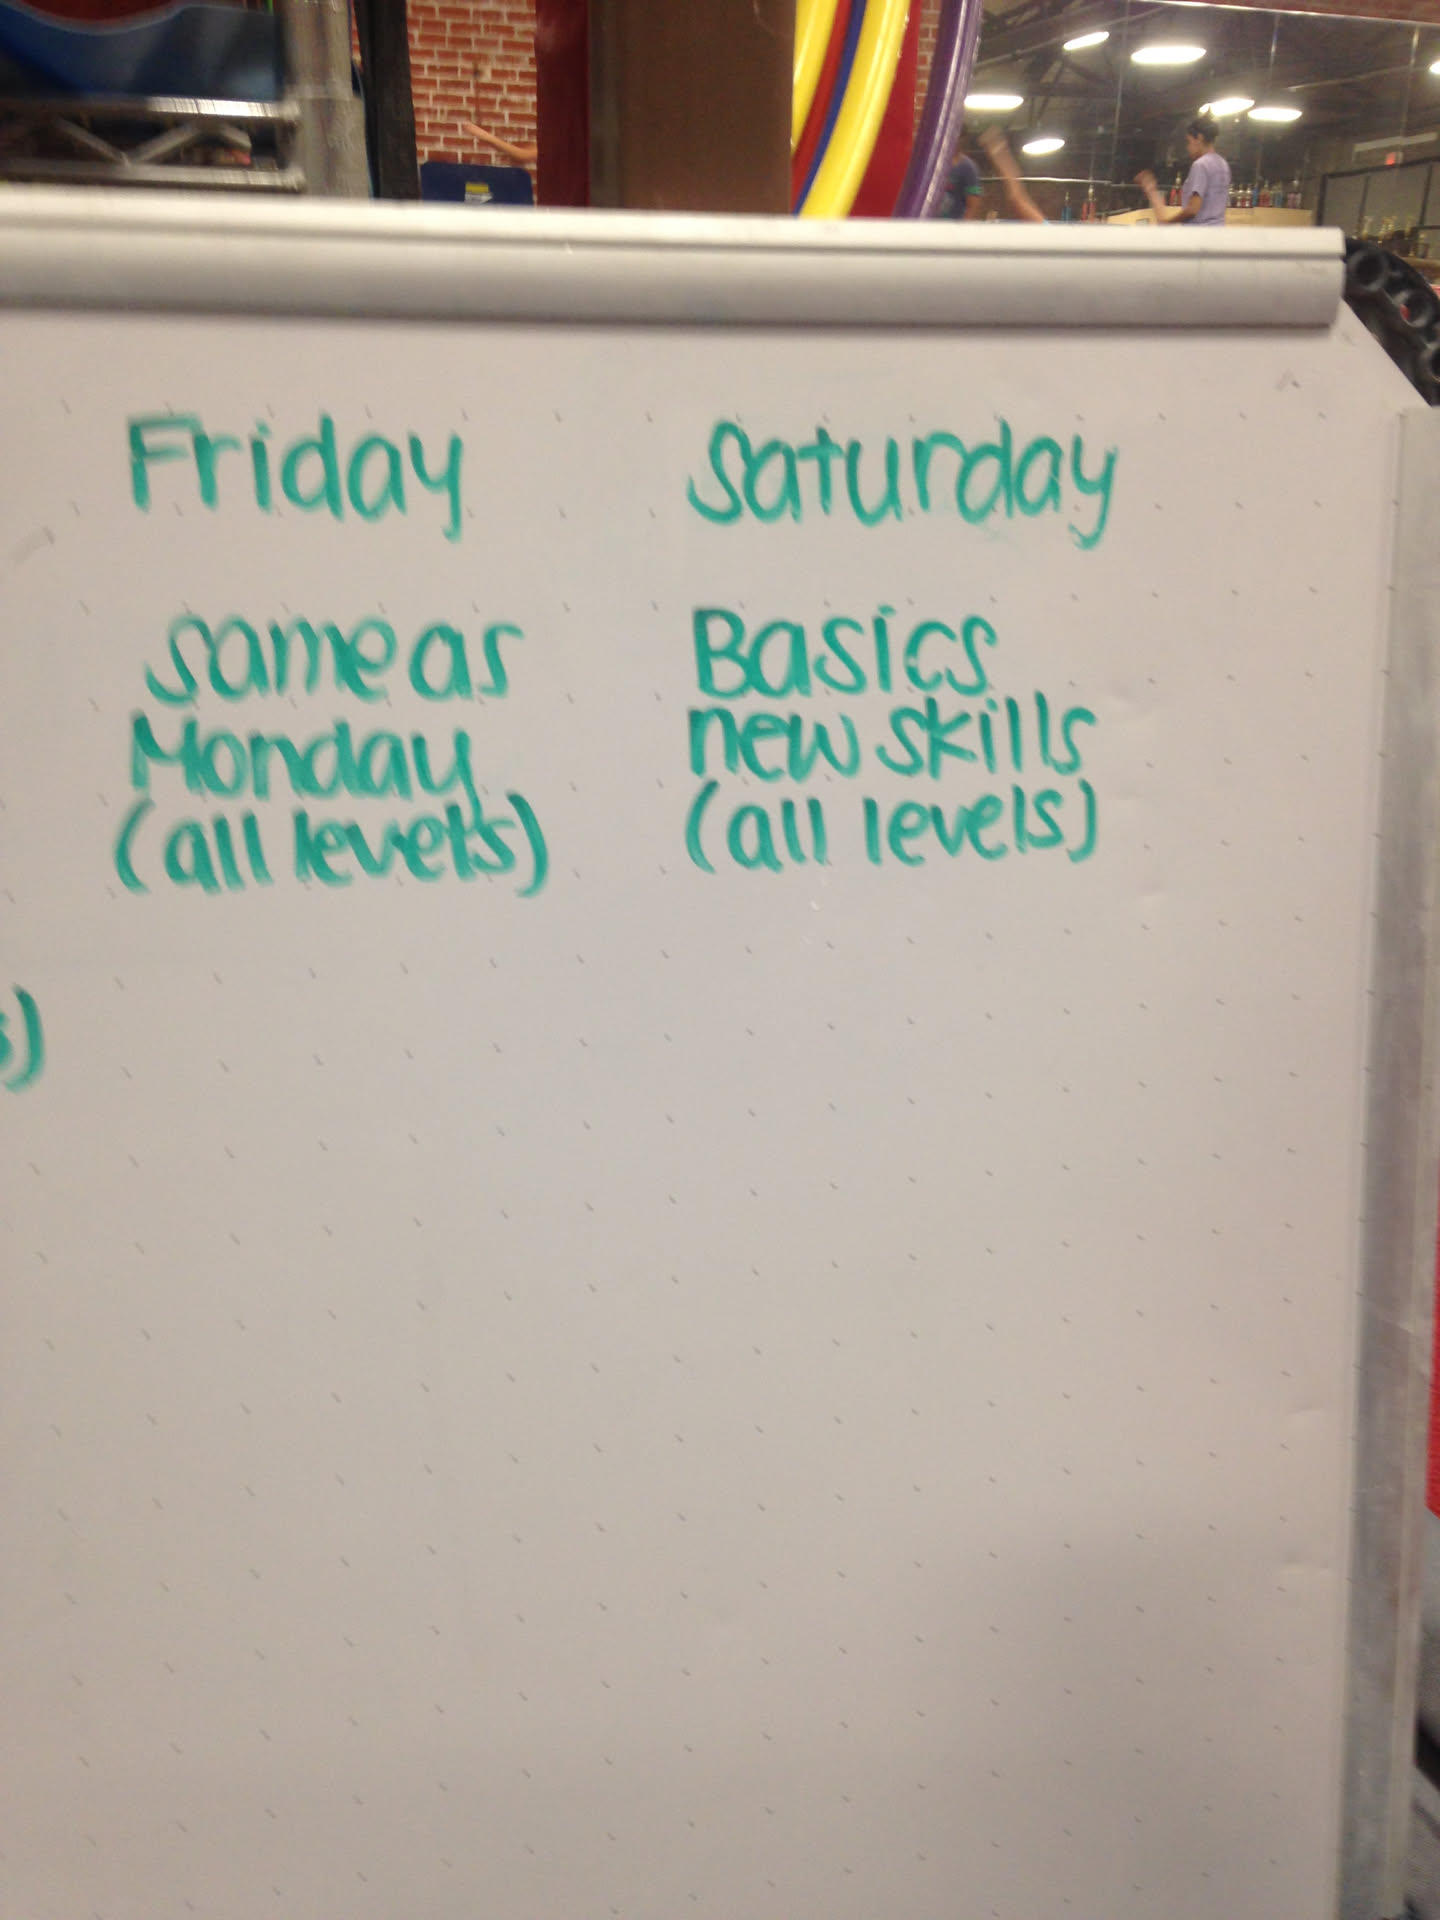 Friday
same as
Monday
(all levels)
Saturday
Basics
new skills
(all levels)
s)